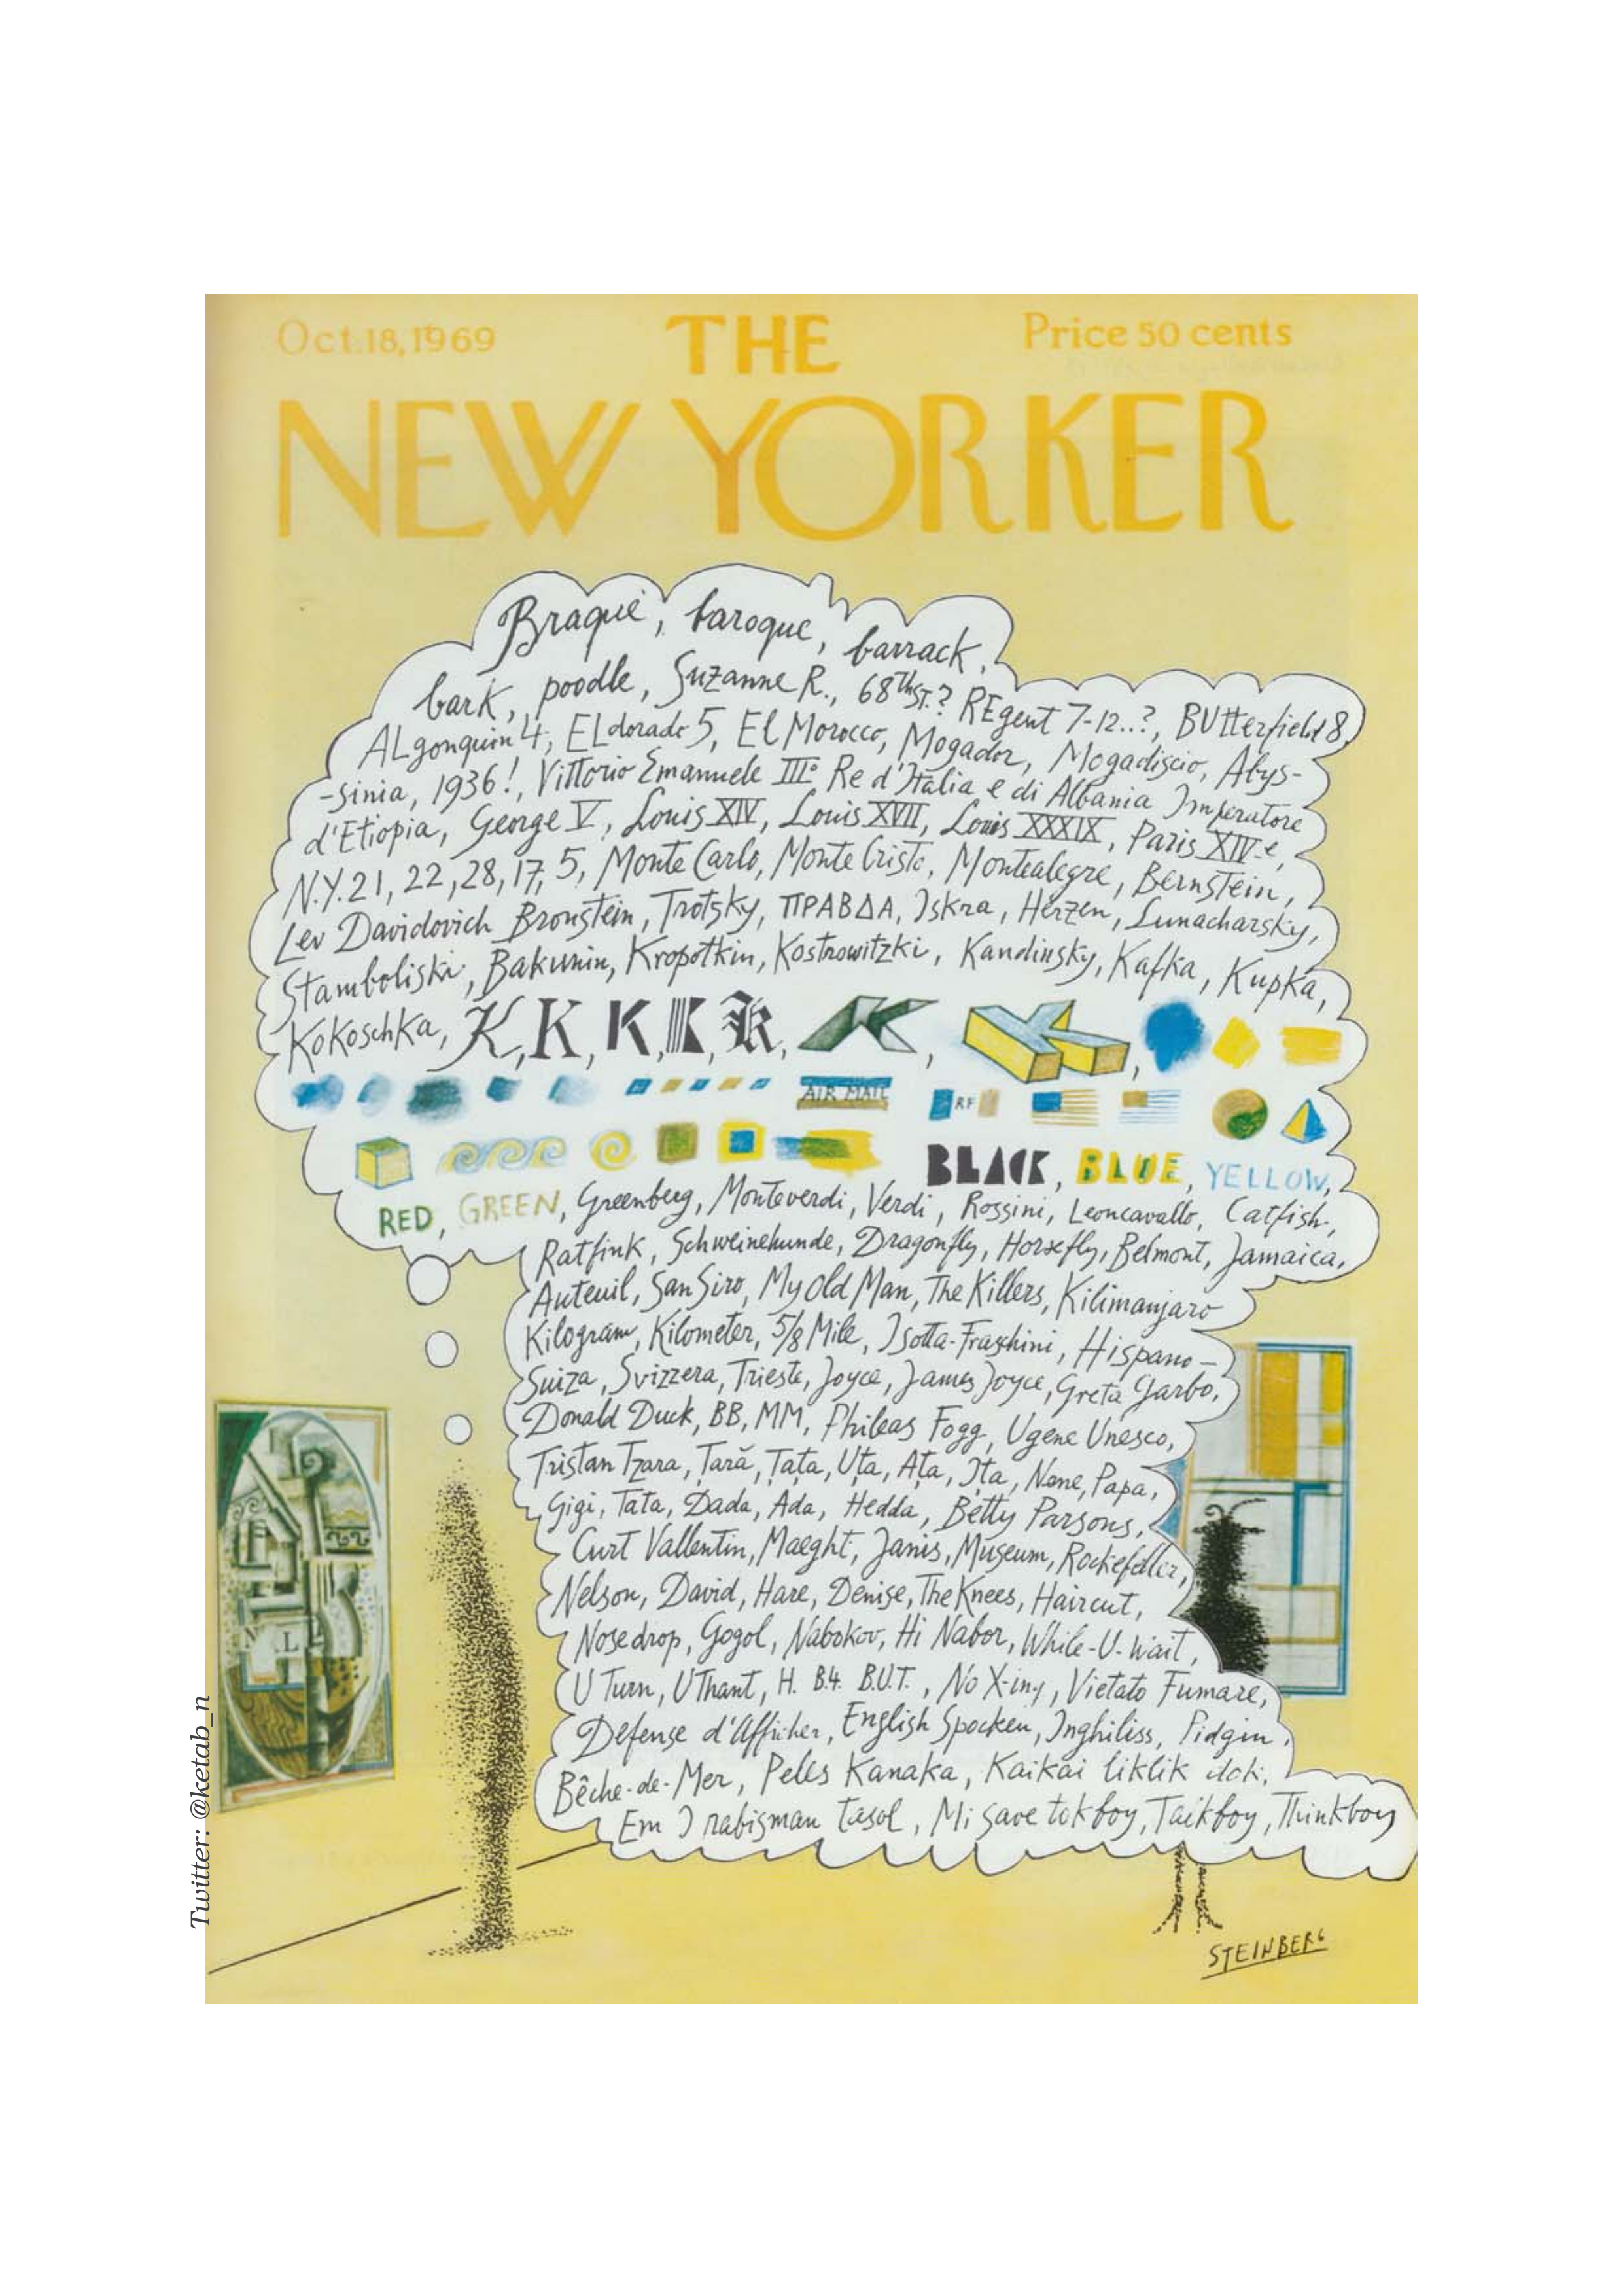 Oct.18,1969
THE
Price 50 cents
NEW YORKER
Braque, baroque, barrack,
bark, poodle, Suzanne R., 68Th ST.? REgent 7-12..?, BUtterfield 8,
ALgonquin 4, ELdorado 5, El Morocco, Mogador, Mogadiscio, Abys-
-sinia, 1936!, Vittorio Emanuele III° Re d'Italia e di Albania Imperatore
d'Etiopia, George V, Louis XIV, Louis XVII, Louis XXXIX, Paris XIV-e,
N.Y.21, 22, 28, 17, 5, Monte Carlo, Monte Cristo, Montealegre, Bernstein,
Lev Davidovich Bronstein, Trotsky, ΠΡΑΒΔΑ, Iskra, Herzen, Lunacharsky,
Stamboliski, Bakunin, Kropotkin, Kostrowitzki, Kandinsky, Kafka, Kupka,
Kokoschka, K, K, K, K, K, K, K,
AIR MAIL RF
BLACK, BLUE, YELLOW,
RED, GREEN, Greenberg, Monteverdi, Verdi, Rossini, Leoncavallo, Catfish,
Ratfink, Schweinehunde, Dragonfly, Horsefly, Belmont, Jamaica,
Auteuil, San Siro, My Old Man, The Killers, Kilimanjaro
Kilogram, Kilometer, 5/8 Mile, Isotta-Fraschini, Hispano-
Suiza, Svizzera, Trieste, Joyce, James Joyce, Greta Garbo,
Donald Duck, BB, MM, Phileas Fogg, Ugene Unesco,
Tristan Tzara, Țară, Țața, Uța, Ața, Ița, Nene, Papa,
Gigi, Tata, Dada, Ada, Hedda, Betty Parsons,
Curt Vallentin, Maeght, Janis, Museum, Rockefeller,
Nelson, David, Hare, Denise, The Knees, Haircut,
Nosedrop, Gogol, Nabokov, Hi Nabor, While-U-Wait,
U Turn, U Thant, H. B.4. B.U.T., No X-ing, Vietato Fumare,
Defense d'Afficher, English Spocken, Inghiliss, Pidgin,
Bêche-de-Mer, Peles Kanaka, Kaikai liklik dok,
Em I rabisman tasol, Mi save tok boy, Talkboy, Thinkboy
L
STEINBERG
Twitter: @ketab_n